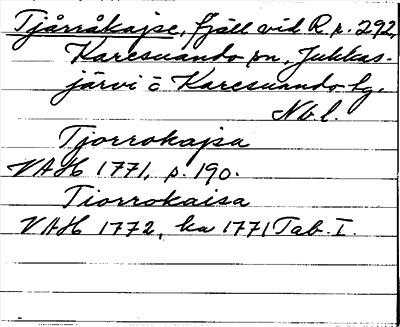 Tjårråkajse, fjäll vid R. r. 292,
Karesuando sn, Jukkas-
järvi o Karesuando lg.
Nbl.
Tjorrokajsa
VAH 1771, p. 190.
Tiorrokaisa
VAH 1772, ka 1771 Tab. I.